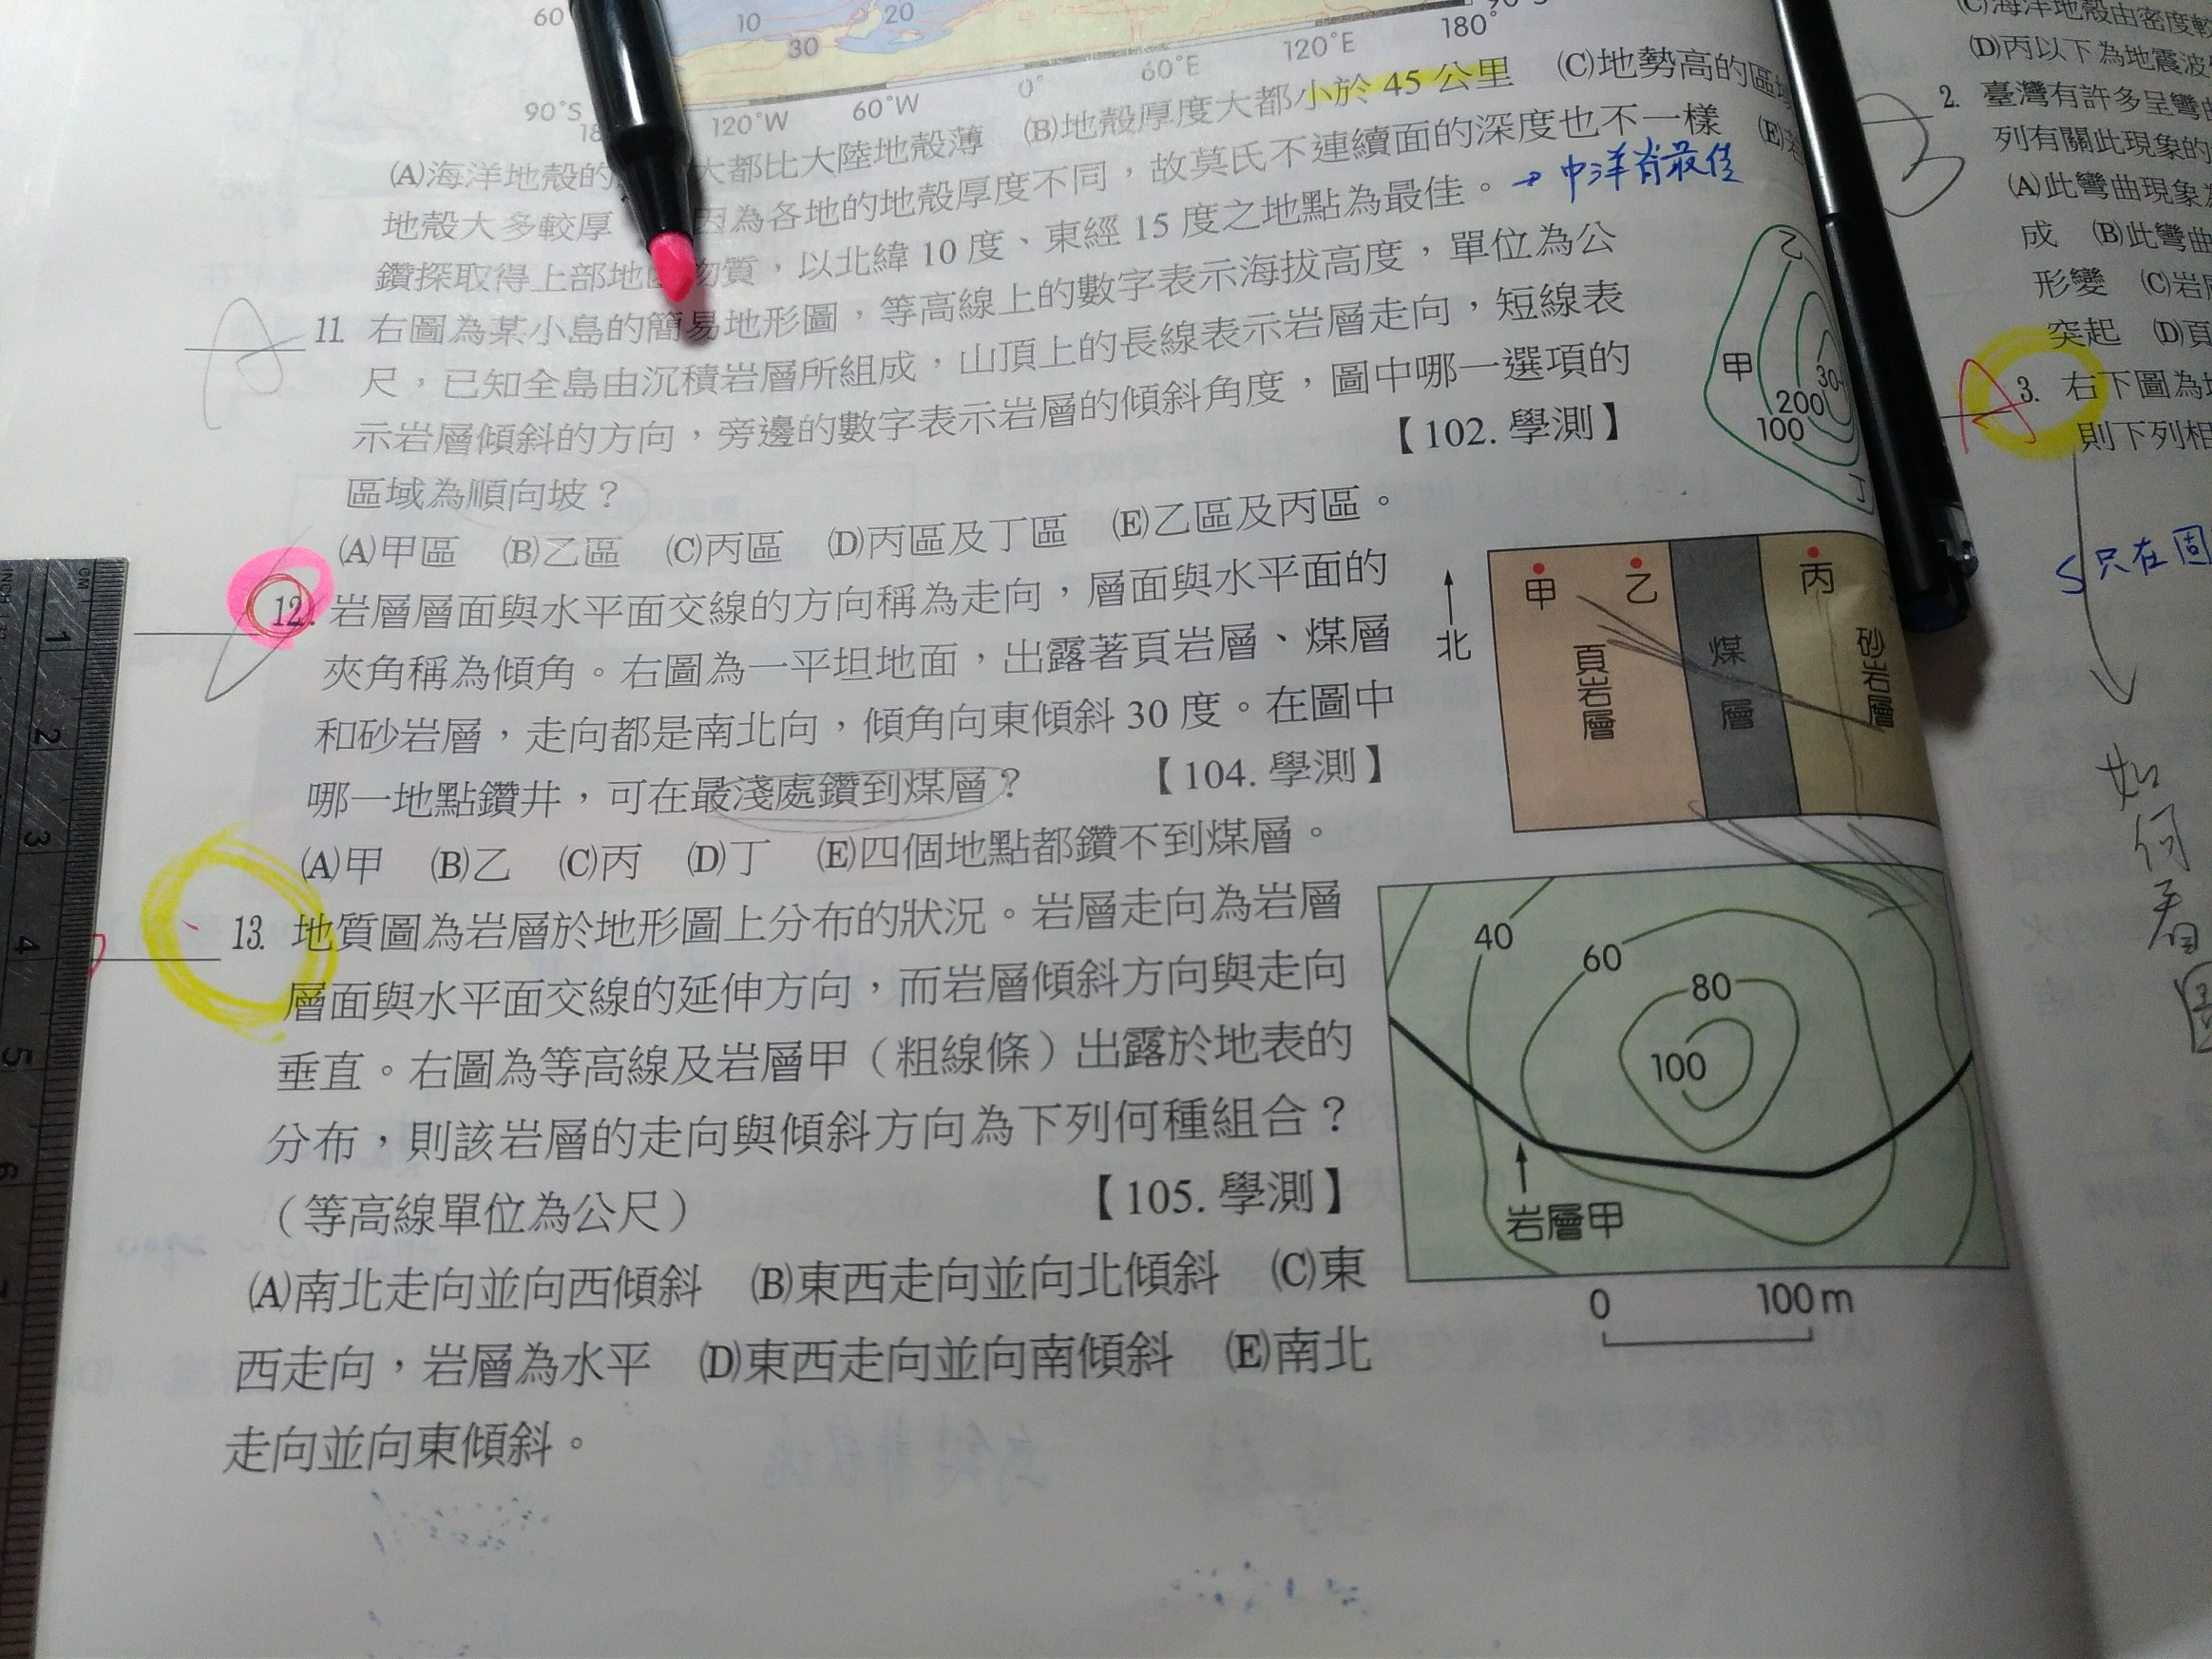 60
10
20
30
90°S
120°W
60°W
0°
60°E
120°E
180°
(A)海洋地殼的 大都比大陸地殼薄 (B)地殼厚度大都小於 45 公里 (C)地勢高的區
地殼大多較厚 因為各地的地殼厚度不同，故莫氏不連續面的深度也不一樣 (E)
鑽探取得上部地 物質，以北緯 10 度、東經 15 度之地點為最佳。→中洋脊最佳
11. 右圖為某小島的簡易地形圖，等高線上的數字表示海拔高度，單位為公
尺，已知全島由沉積岩層所組成，山頂上的長線表示岩層走向，短線表
示岩層傾斜的方向，旁邊的數字表示岩層的傾斜角度，圖中哪一選項的
區域為順向坡？ 【102. 學測】
(A)甲區 (B)乙區 (C)丙區 (D)丙區及丁區 (E)乙區及丙區。
乙
甲
30
200
100
丁
12. 岩層層面與水平面交線的方向稱為走向，層面與水平面的
夾角稱為傾角。右圖為一平坦地面，出露著頁岩層、煤層
和砂岩層，走向都是南北向，傾角向東傾斜 30 度。在圖中
哪一地點鑽井，可在最淺處鑽到煤層？ 【104. 學測】
(A)甲 (B)乙 (C)丙 (D)丁 (E)四個地點都鑽不到煤層。
北
甲
乙
丙
頁岩層
煤層
砂岩層
13. 地質圖為岩層於地形圖上分布的狀況。岩層走向為岩層
層面與水平面交線的延伸方向，而岩層傾斜方向與走向
垂直。右圖為等高線及岩層甲（粗線條）出露於地表的
分布，則該岩層的走向與傾斜方向為下列何種組合？
（等高線單位為公尺） 【105. 學測】
(A)南北走向並向西傾斜 (B)東西走向並向北傾斜 (C)東
西走向，岩層為水平 (D)東西走向並向南傾斜 (E)南北
走向並向東傾斜。
40
60
80
100
岩層甲
0 100 m
(C)海洋地殼由密度較
(D)丙以下為地震波
2. 臺灣有許多呈彎曲
列有關此現象的
(A)此彎曲現象
成 (B)此彎曲
形變 (C)岩
突起 (D)頁
A 3. 右下圖為
則下列相
S只在固
如何看